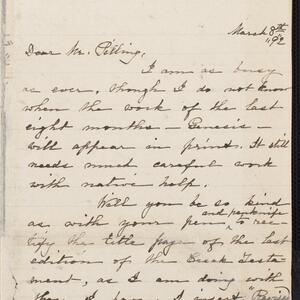 March 8th
"92
Dear Mr. Pilling,
I am as busy
as ever, though I do not know
when the work of the last
eight months – Genesis –
will appear in print. It still
needs much careful work
with native help.
Will you be so kind
as with your pen and penknife to rec-
tify the title page of the last
edition of the Greek Testa-
ment, as I am doing with
I insert "Revis